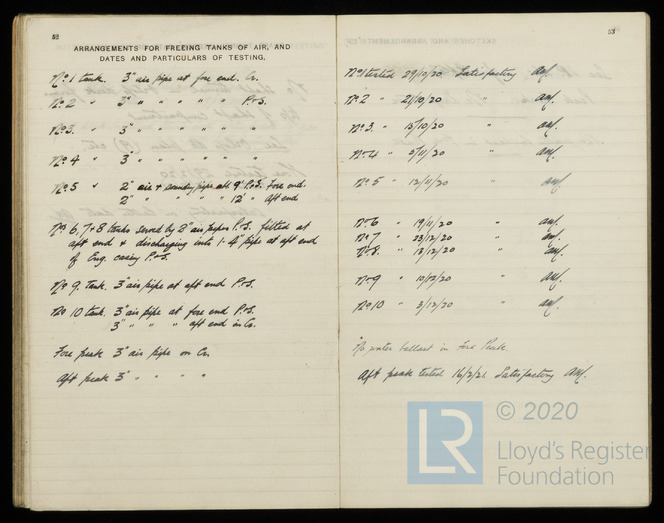 52
ARRANGEMENTS FOR FREEING TANKS OF AIR, AND
DATES AND PARTICULARS OF TESTING.
No 1 tank. 3" air pipe at fore end. Cr.
No 2 " 3" " " " " " P.&S.
No 3. " 3" " " " " " "
No 4 " 3" " " " " " "
No 5 " 2" air & sounding pipe att. 9' P.&S. Fore end.
2" " " " " 12' " Aft end
Nos 6, 7 & 8 tanks served by 2" air pipes P.&S. fitted at
aft end & discharging into 1-4" pipe at aft end
of Eng. casing P.&S.
No 9. tank. 3" air pipe at aft end P.&S.
No 10 tank. 3" air pipe at fore end P.&S.
3" " " " aft end in Cr.
Fore peak 3" air pipe on Cr.
Aft peak 3" " " " "
53
No 1 tested 29/10/20 Satisfactory
No 2 " 21/10/20 "
No 3. " 15/10/20 "
No 4 " 5/11/20 "
No 5 " 12/11/20 "
No 6 " 19/11/20 "
No 7 " 23/12/20 "
No 8. " 13/12/20 "
No 9 " 10/12/20 "
No 10 " 3/12/20 "
No water ballast in Fore Peak
Aft peak tested 16/2/21 Satisfactory
LR © 2020
Lloyd's Register
Foundation